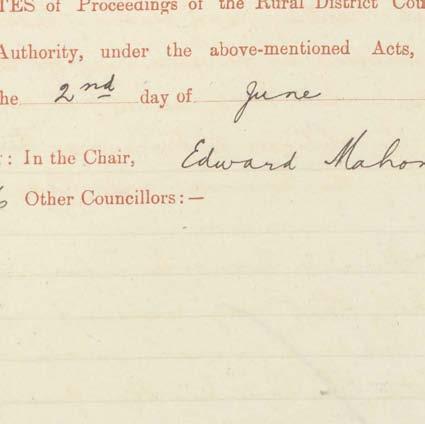 TES of Proceedings of the Rural District Cou
Authority, under the above-mentioned Acts,
he 2nd day of June
: In the Chair, Edward Mahon
Other Councillors:—